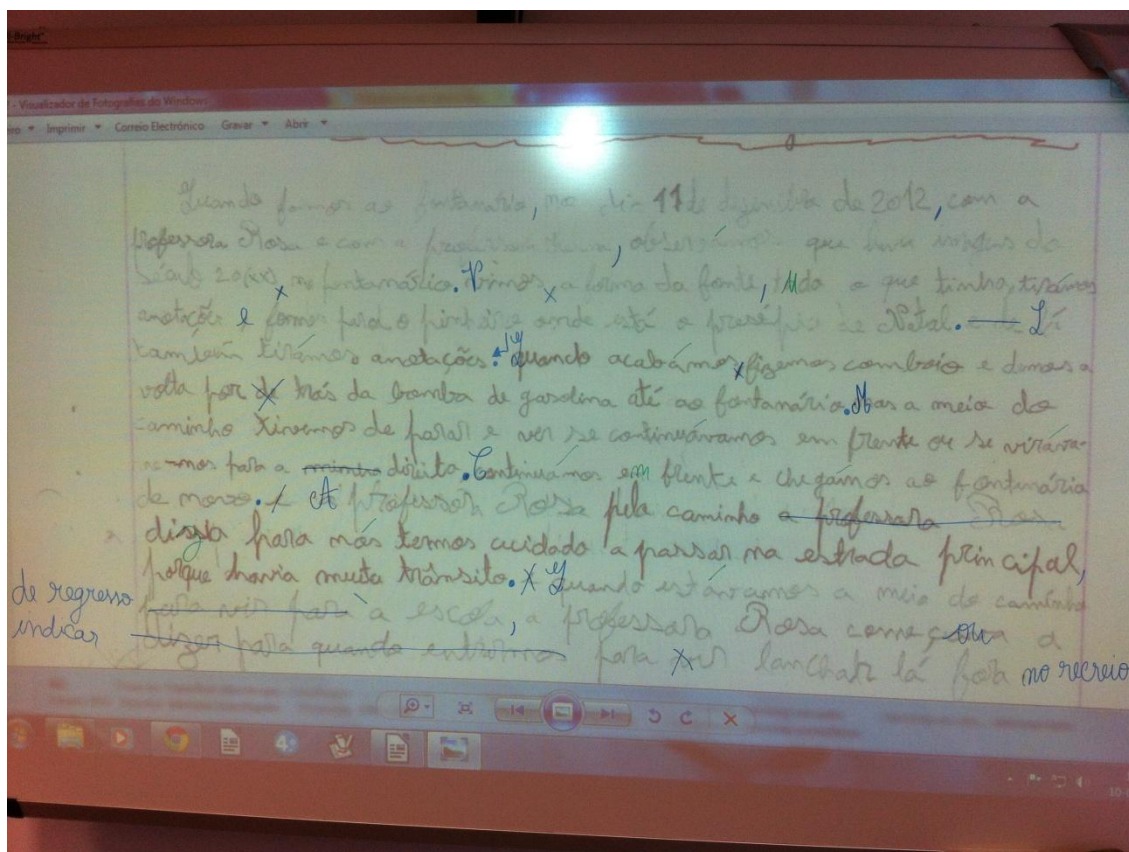 - Visualizador de Fotografias do Windows
Imprimir Correio Electrónico Gravar Abrir
Quando fomos ao fontanário, no dia 11 de dezembro de 2012, com a
professora Rosa e com a professora, observámos que
século 20(XX), no fontanário. Vimos a forma da fonte, tudo o que tinha, tirámos
anotações e fomos para o pinhário onde está o presépio de Natal. Lá
também tirámos anotações. Quando acabámos, fizemos comboio e demos a
volta por de trás da bomba de gasolina até ao fontanário. Mas a meio do
caminho tivemos de parar e ver se continuávamos em frente ou se viráva-
-mos para a direita. Continuámos em frente e chegámos ao fontanário
de novo. A professora Rosa pelo caminho a professora Rosa
disse para nós termos cuidado a passar na estrada principal,
porque havia muito trânsito. X Quando estávamos a meio do caminho
de regresso para vir para à escola, a professora Rosa começou a
indicar dizer para quando entrarmos para ir lanchar lá fora no recreio